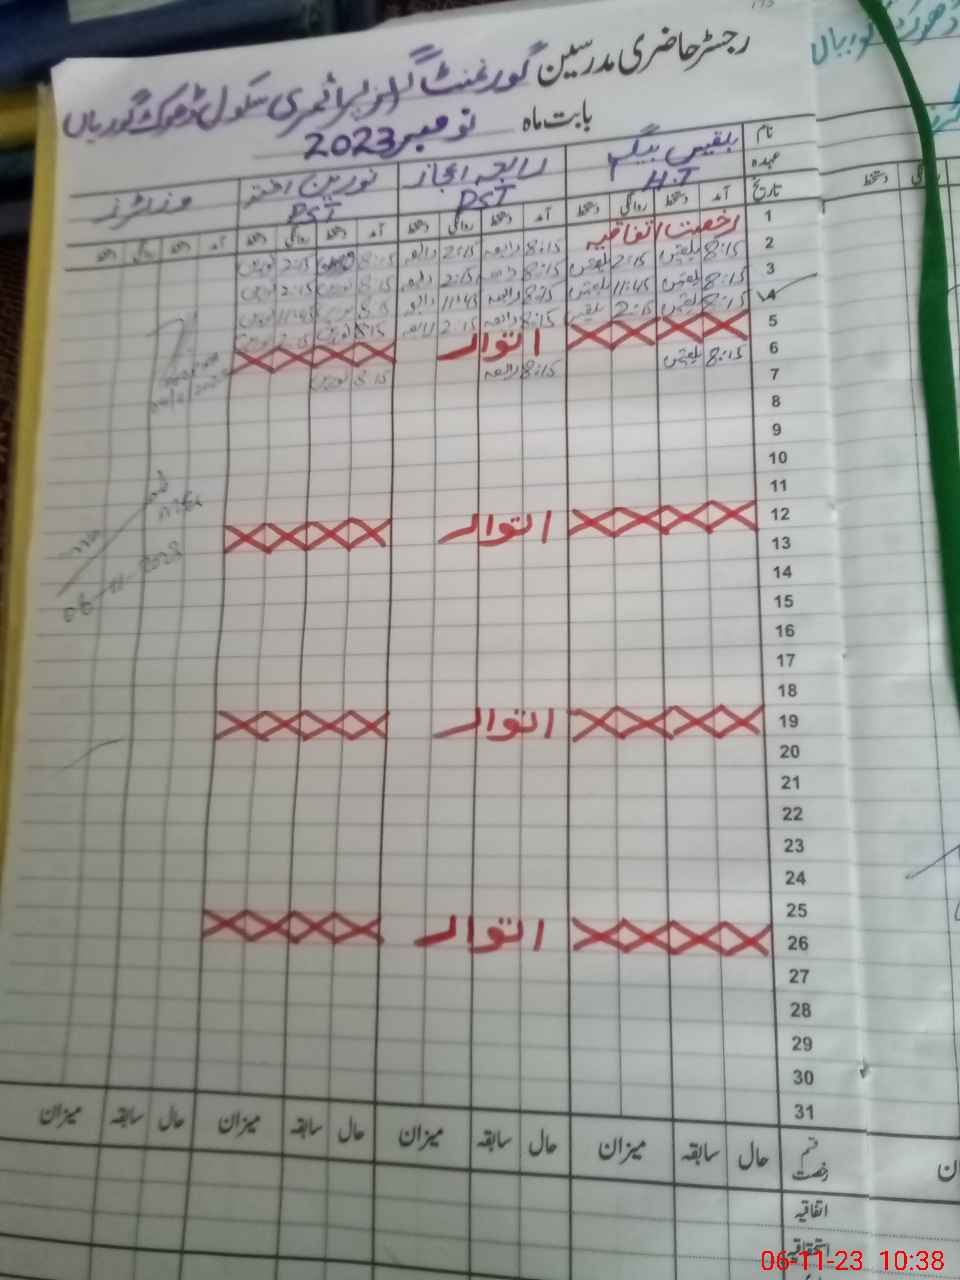 رجسٹر حاضری مدرسین گورنمنٹ گرلز پرائمری سکول ڈھوک گوریاں
بابت ماہ نومبر 2023
نام بلقیس بیگم رابعہ اعجاز نورین اختر وزیٹرز
عہدہ H.T PST PST
تاریخ آمد دستخط روانگی دستخط آمد دستخط روانگی دستخط آمد دستخط روانگی دستخط آمد دستخط روانگی دستخط
1 رخصت اتفاقیہ 8:15 رابعہ 2:15 رابعہ 8:15 نورین 2:15 نورین
2 8:15 بلقیس 2:15 بلقیس 8:15 رابعہ 2:15 رابعہ 8:15 نورین 2:15 نورین
3 8:15 بلقیس 11:45 بلقیس 8:15 رابعہ 11:45 رابعہ 8:15 نورین 11:45 نورین
4 8:15 بلقیس 2:15 بلقیس 8:15 رابعہ 2:15 رابعہ 8:15 نورین 2:15 نورین
5 اتوار
6 8:15 بلقیس 8:15 رابعہ 8:15 نورین
7
8
9
10
11
12 اتوار
13
06-11-2023
14
15
16
17
18
19 اتوار
20
21
22
23
24
25
26 اتوار
27
28
29
30
31
قسم رخصت حال سابقہ میزان حال سابقہ میزان حال سابقہ میزان حال سابقہ میزان
اتفاقیہ
استحقاقیہ
06-11-23 10:38